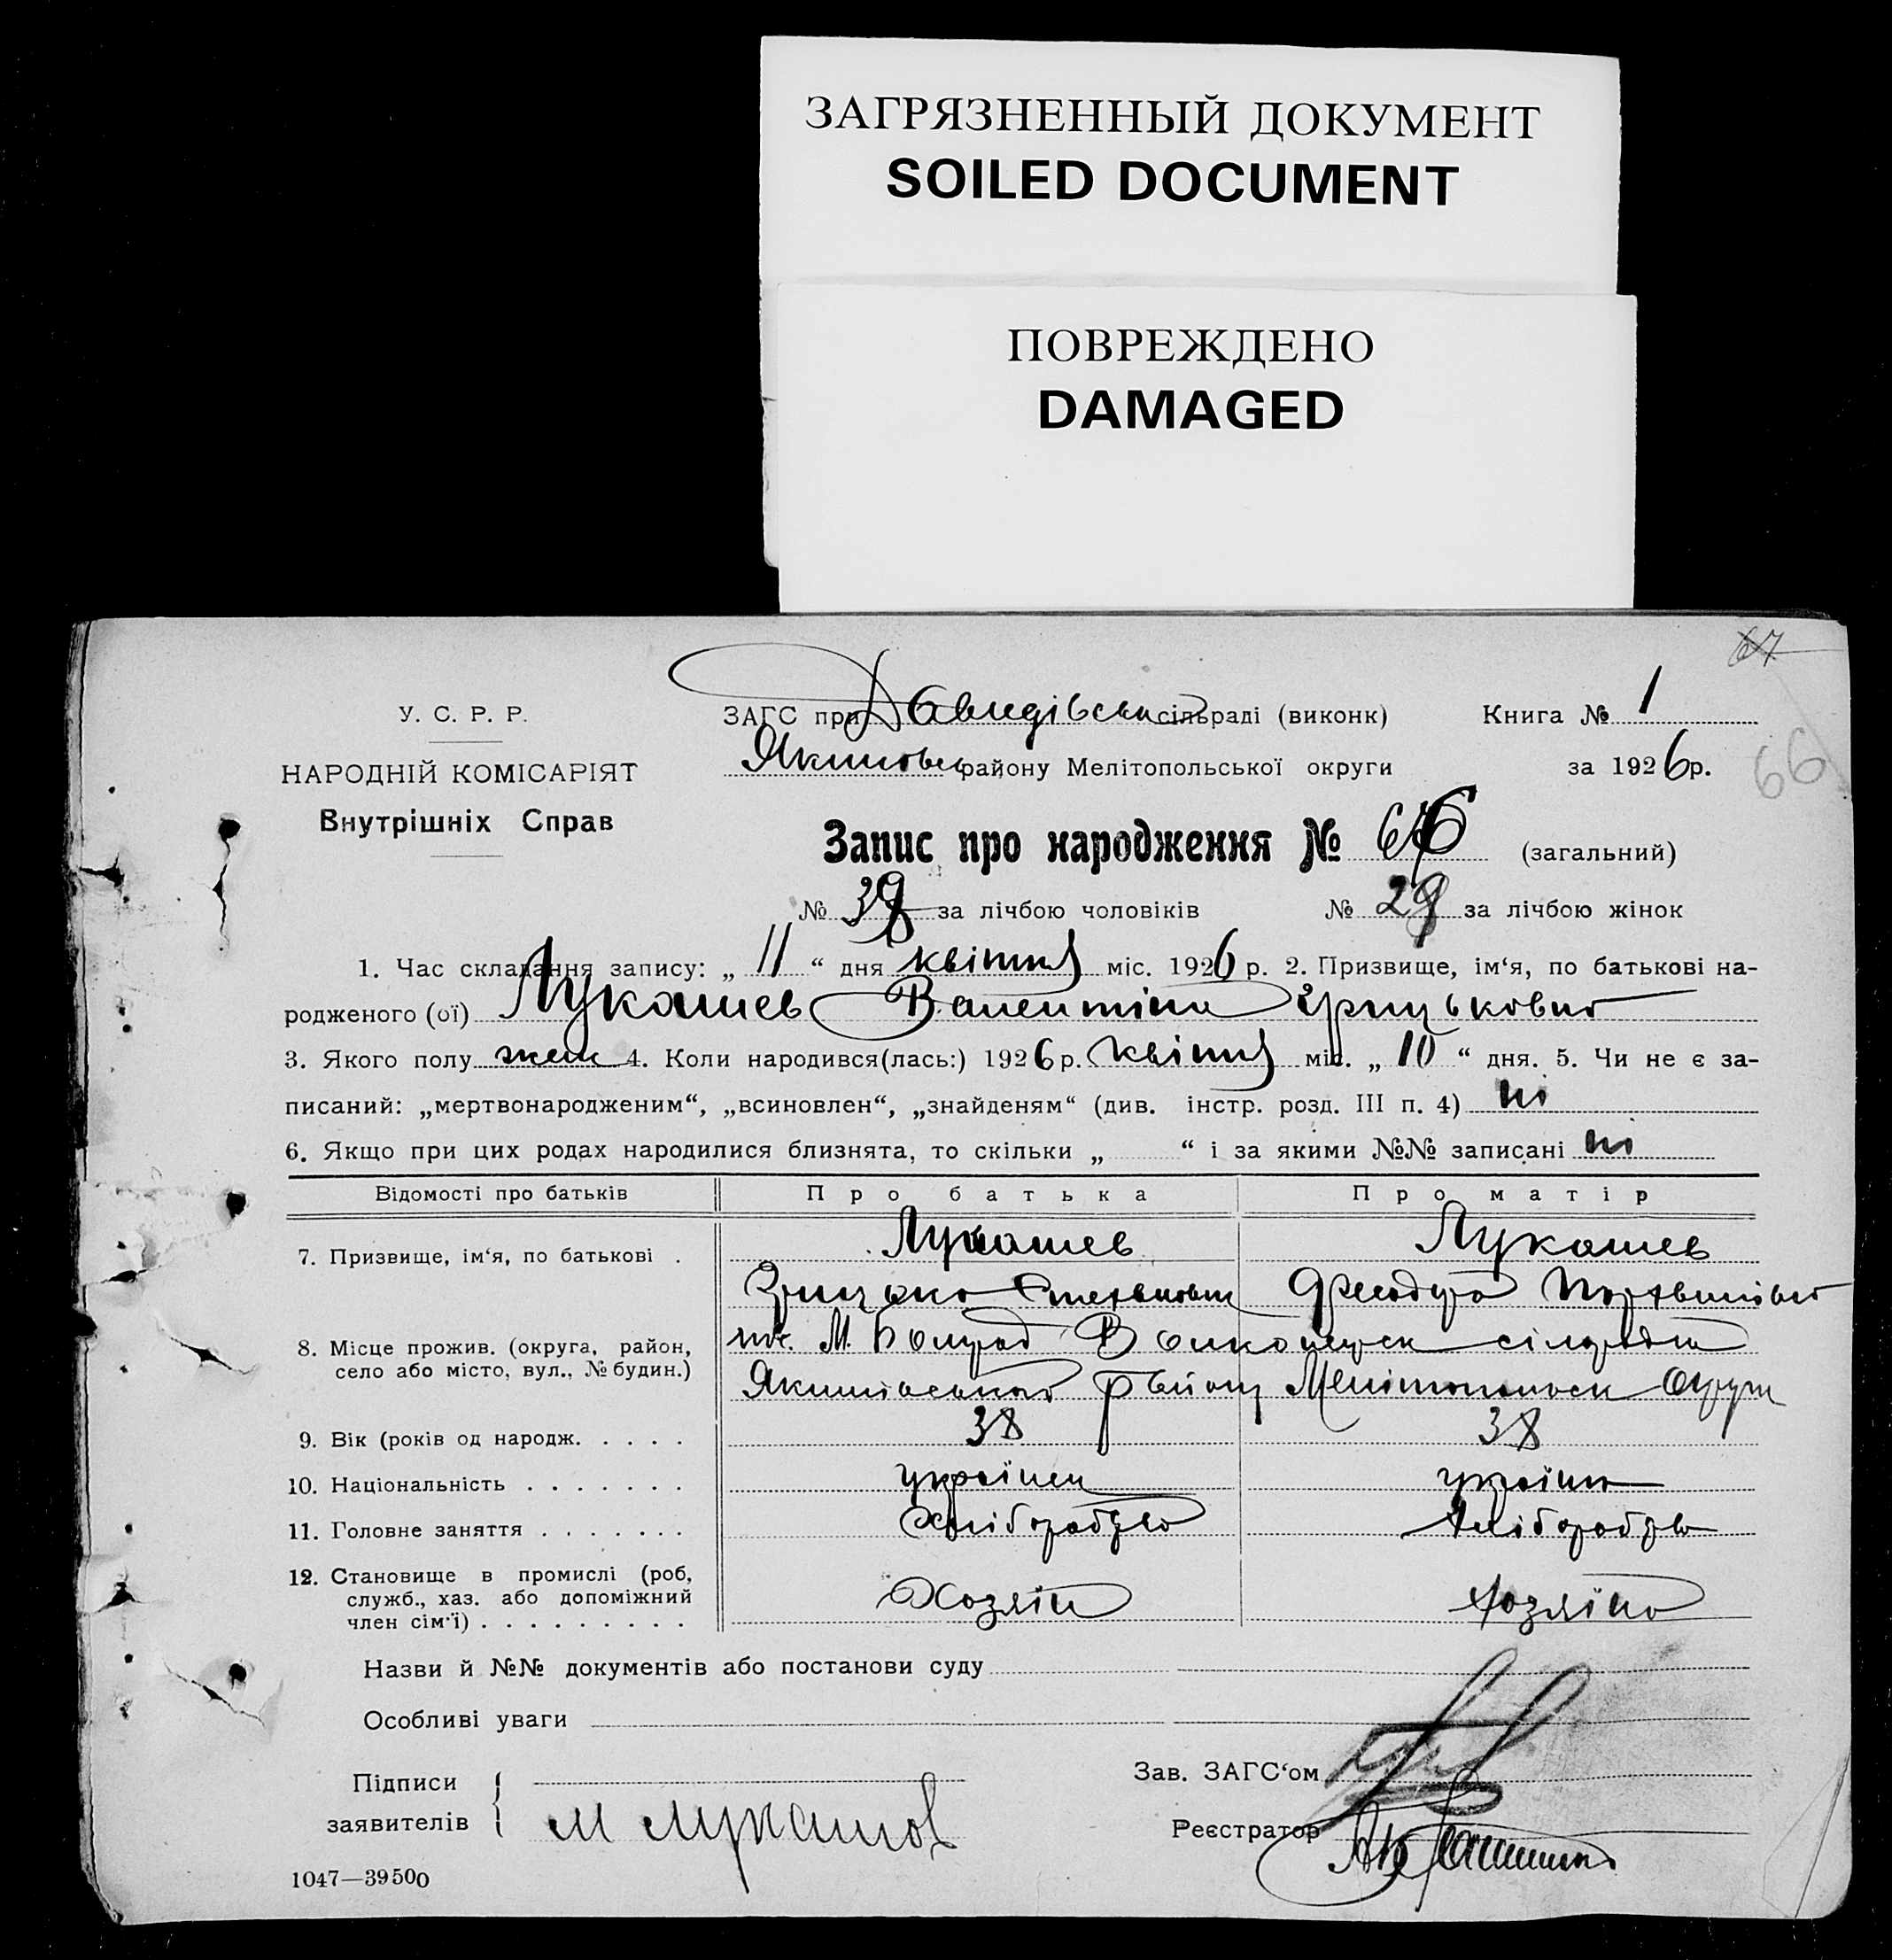 ЗАГРЯЗНЕННЫЙ ДОКУМЕНТ
SOILED DOCUMENT
ПОВРЕЖДЕНО
DAMAGED
67
У. С. Р. Р.
ЗАГС при Давидівськ сільраді (виконк) Книга № 1
НАРОДНІЙ КОМІСАРІЯТ
Якимовськ району Мелітопольської округи за 1926р.
66
Внутрішніх Справ
Запис про народження № (загальний)
№ за лічбою чоловіків № за лічбою жінок
1. Час складання запису: „ 11 “ дня квітня міс. 1926 р. 2. Призвище, ім‘я, по батькові на-
родженого (ої) Лукашев Валентіна Грицьковна
3. Якого полу жен 4. Коли народився(лась:) 1926р. квітня міс. „ 10 “ дня. 5. Чи не є за-
писаний: „мертвонародженим“, „всиновлен“, „знайденям“ (див. інстр. розд. III п. 4) ні
6. Якщо при цих родах народилися близнята, то скільки „ “ і за якими №№ записані ні
Відомості про батьків Про батька Про матір
7. Призвище, ім‘я, по батькові . Лукашев Лукашев
Грицько Степанович
8. Місце прожив. (округа, район, село або місто, вул., № будин.)
М. Болград сілради
Якимівського району Мелітопольськ Округи
9. Вік (років од народж. . . . . 38 38
10. Національність . . . . . . . українец українка
11. Головне заняття . . . . . . . Хліборобство Хліборобство
12. Становище в промислі (роб,
служб., хаз. або допоміжний
член сім‘ї) . . . . . . . . . Хозяін Хозяіна
Назви й №№ документів або постанови суду
Особливі уваги
Підписи
Зав. ЗАГС‘ом
заявителів М Лукашов
Реєстратор
1047—39500